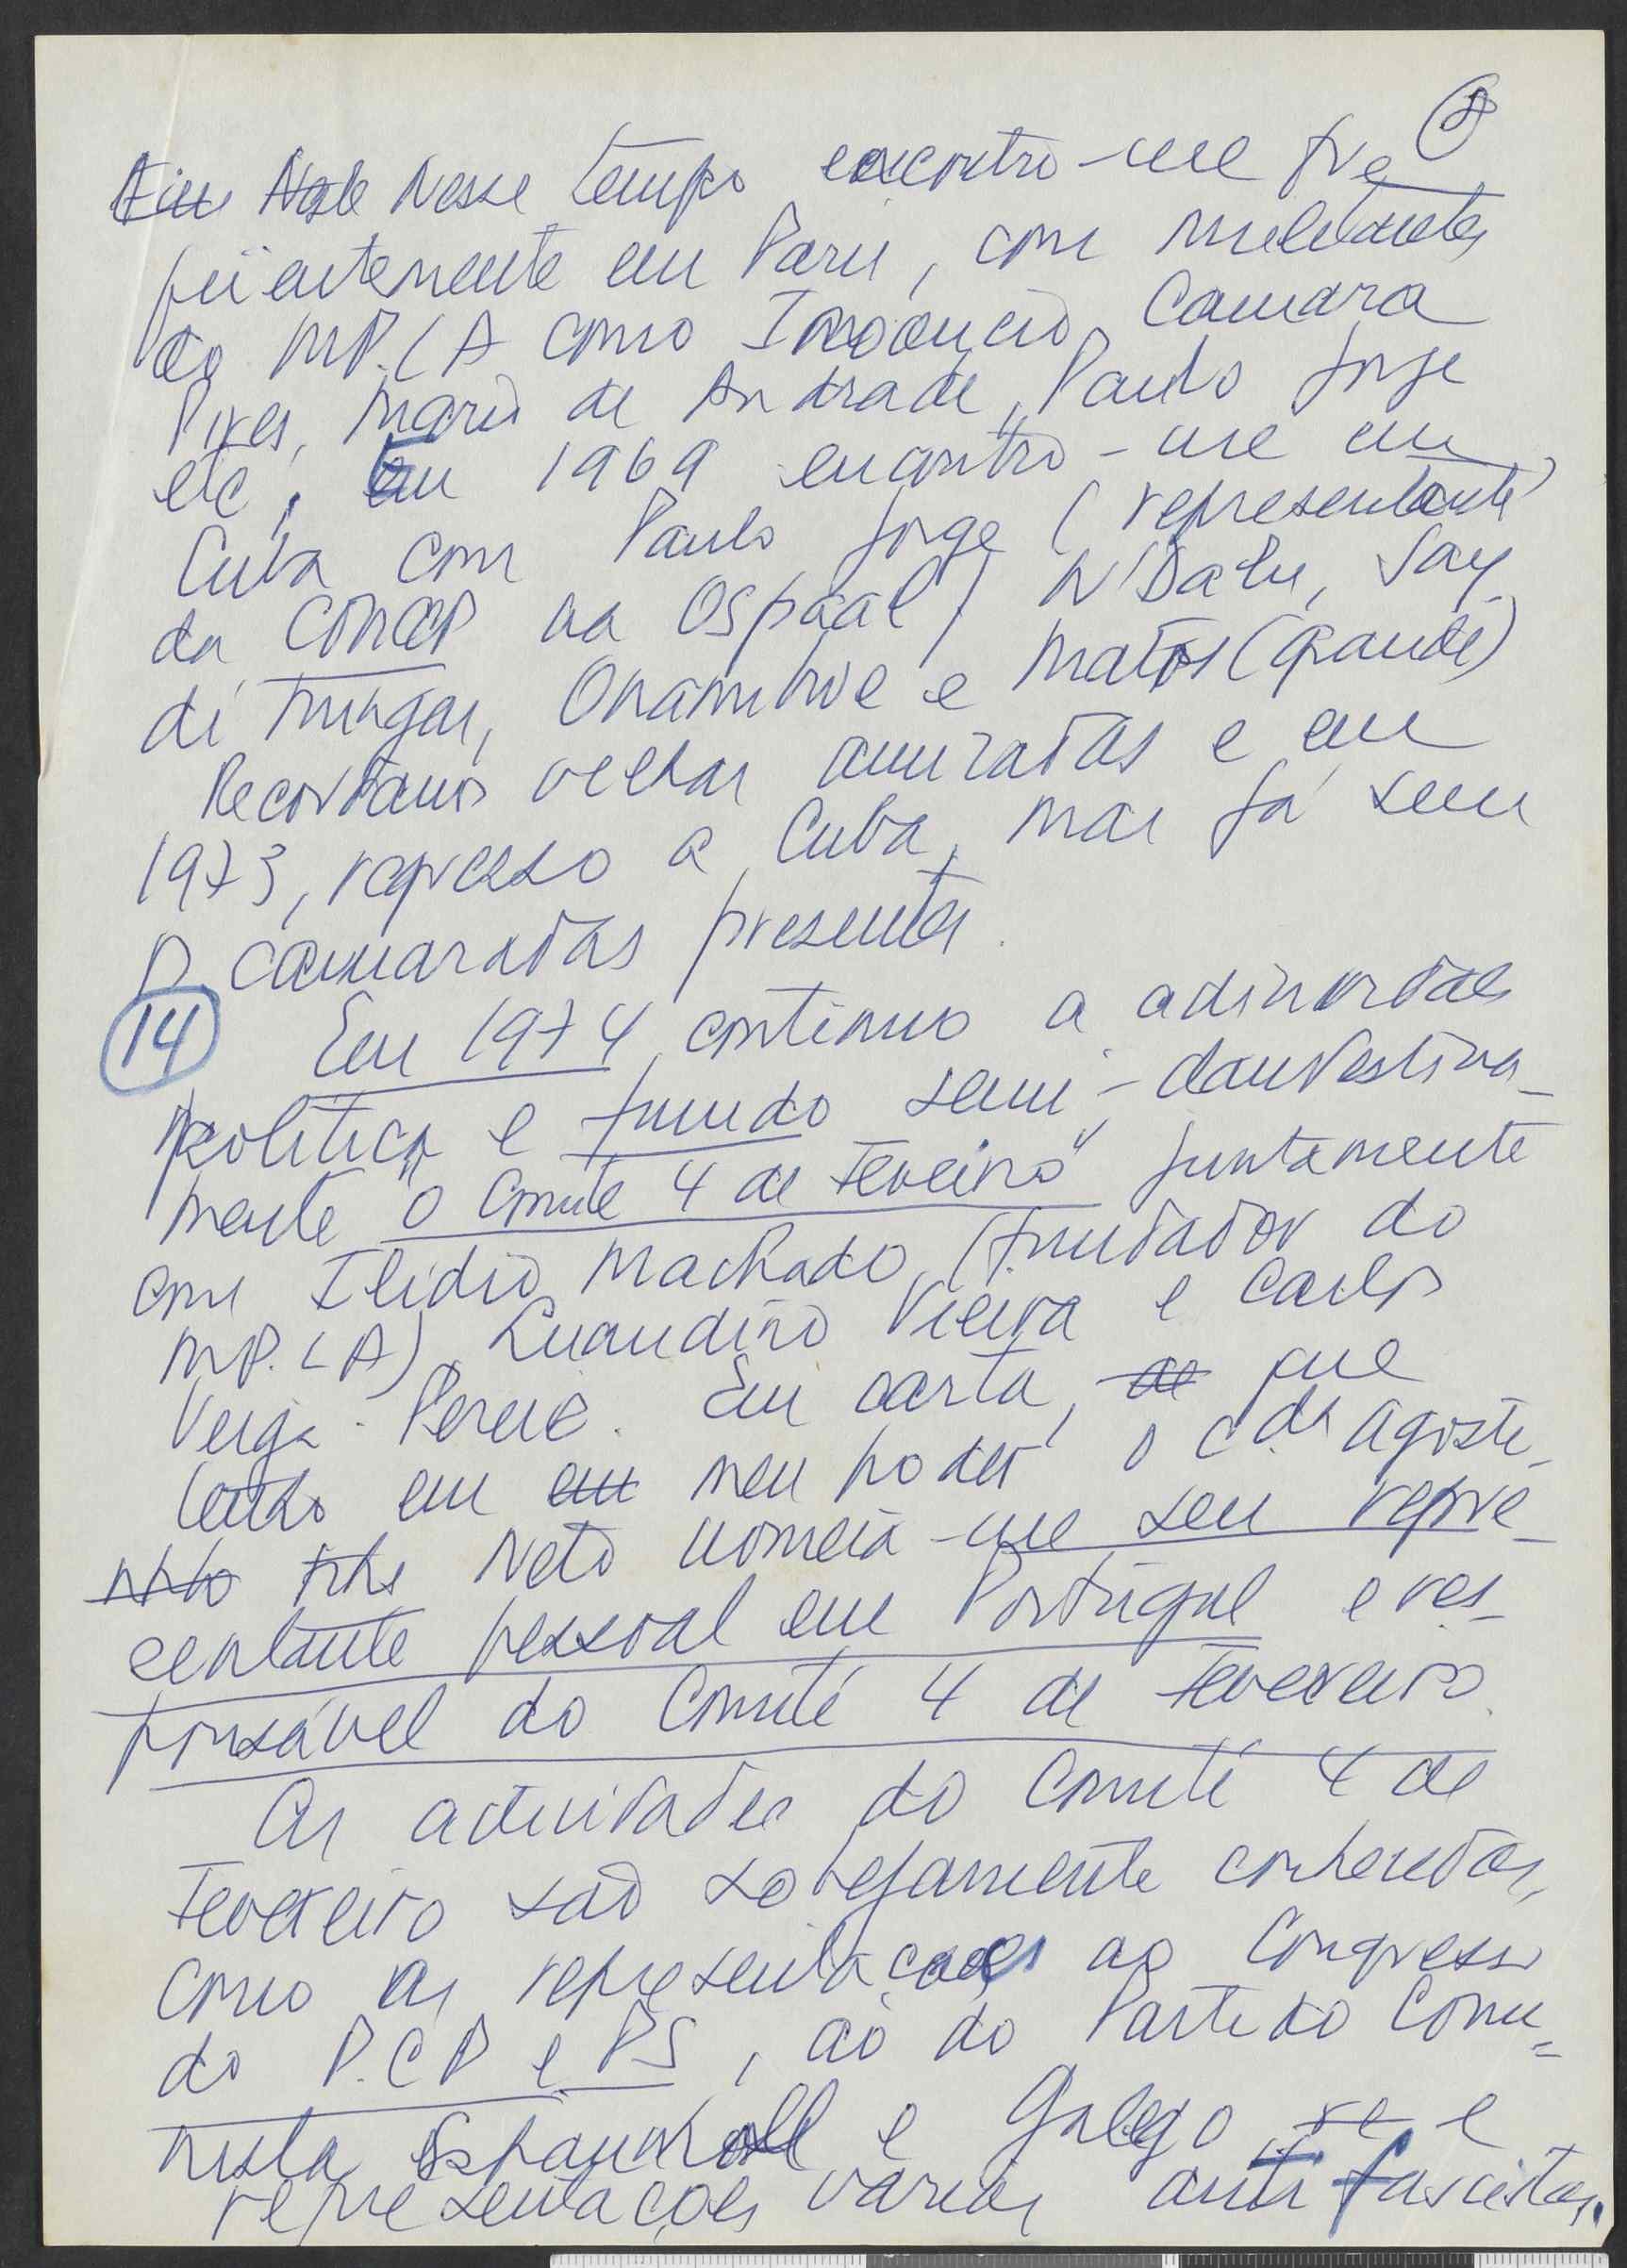 8
~~Em~~ ~~Nesse~~ Nesse tempo encontro-me fre_
quentemente em Paris, com militantes
do MP.LA como Inocêncio, Camara
Pires, Mario de Andrade, Paulo Jorge
etc. Em 1969 encontro-me em
Cuba com Paulo Jorge (representante
da CONCP na Ospaal) N'Dalu, Say
di Mingas, Onambwe e Matos (grande)
Recordamos velhas amizadas e em
1973, regresso a Cuba, mas já sem
os camaradas presentes.
14 Em 1974, continuo a
politica e fundo semi-clandestina_
mente "o Comite 4 de Fevereiro" juntamente
com Ilidio Machado (fundador do
MP.LA), Luandino Vieira e Carlos
Veiga Pereira. Em carta, ~~de~~ que
tenho em ~~em~~ meu poder o c.da Agosti_
~~nho~~ nho Neto nomeia-me seu repre_
sentante pessoal em Portugal e res_
ponsável do Comité 4 de Fevereiro.
As actividades do Comité 4 de
Fevereiro são sobejamente conhecidas,
como as representações ao Congresso
do P.C.P e PS, ao do Partido Comu=
nista Espanhol e Galego ~~re~~ e
representações várias anti fascistas.